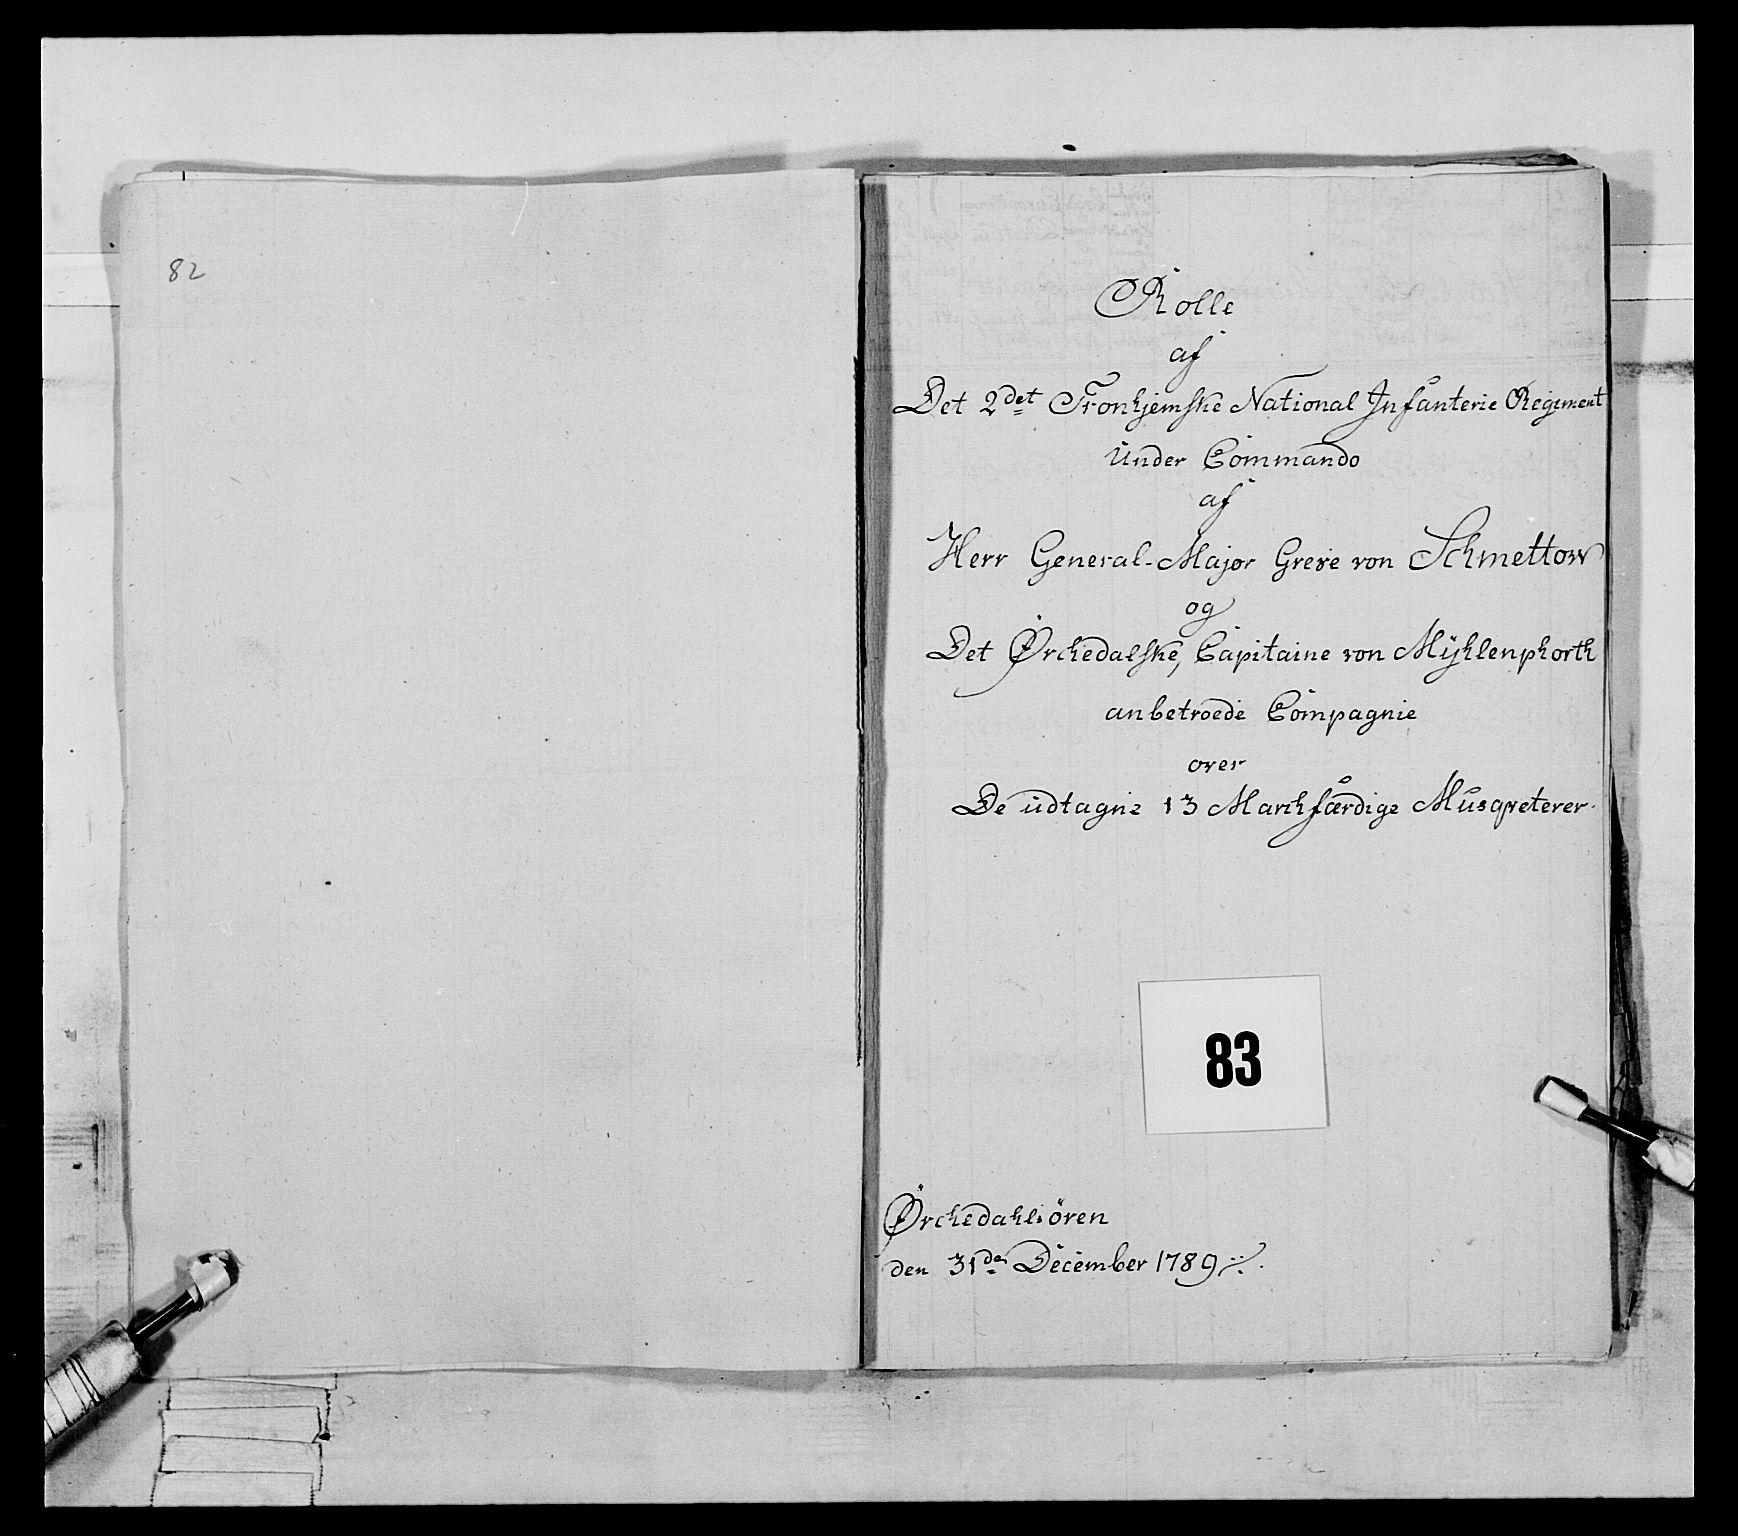 82
Rolle
af
Det 2det Tronhjemske National Infanterie Regiment
Under Commando
af
Herr General-Major Greve von Schmettow
og
Det Ørchedalske, Capitaine von Mÿhlenphorth
anbetroede Compagnie
over
De udtagne 13 Marchfærdige Musqveterer.
83
Ørchedahlsören
den 31de December 1789